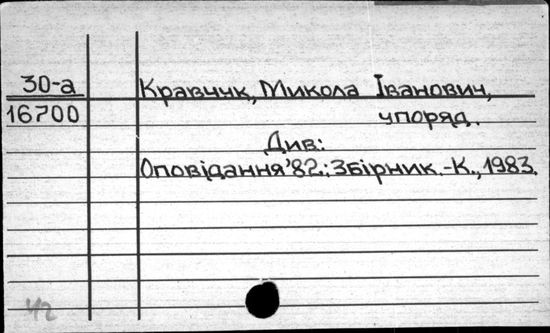 30-а Кравчук, Микола Іванович,
16700 упоряд.
Див:
Оповідання'82.: Збірник.-К., 1983.